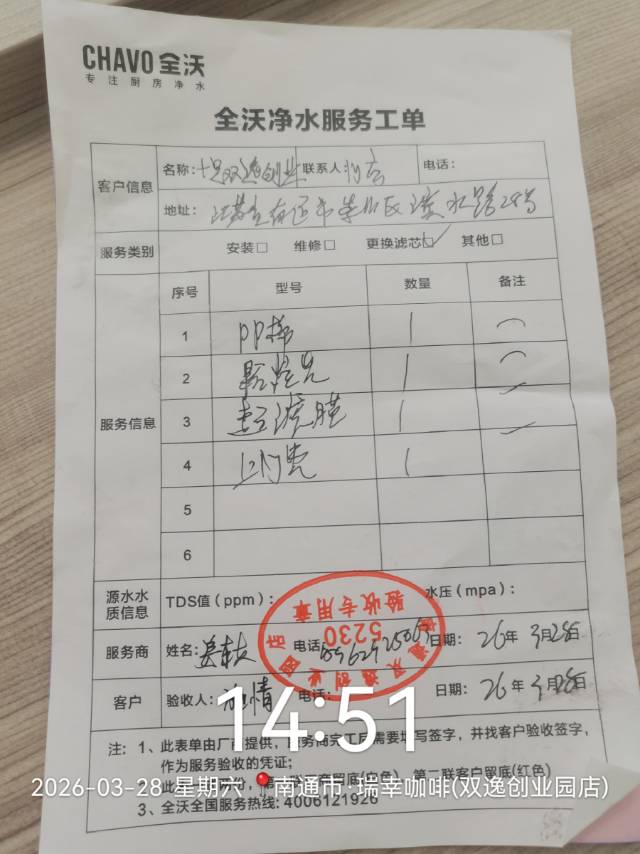 CHAVO 全沃
专注厨房净水
全沃净水服务工单
客户信息
名称: 双逸创业 联系人 电话:
地址: 江苏省南通市崇川区 水路28号
服务类别 安装□ 维修□ 更换滤芯☑ 其他□
服务信息
序号 型号 数量 备注
1 PP棉 1
2 1
3 超滤膜 1
4 1
5
6
源水水质信息 TDS值(ppm): 水压(mpa):
服务商 姓名: 电话 日期: 26年3月28日
客户 验收人: 情 电话: 日期: 26年3月28日
验收专用章
5230
双逸创业园店
14:51
注: 1、此表单由厂商提供,服务商完工后需要填写签字,并找客户验收签字,
作为服务验收的凭证;
第二联客户留底(红色)
2026-03-28 星期六 南通市·瑞幸咖啡(双逸创业园店)
3、全沃全国服务热线: 4006121926